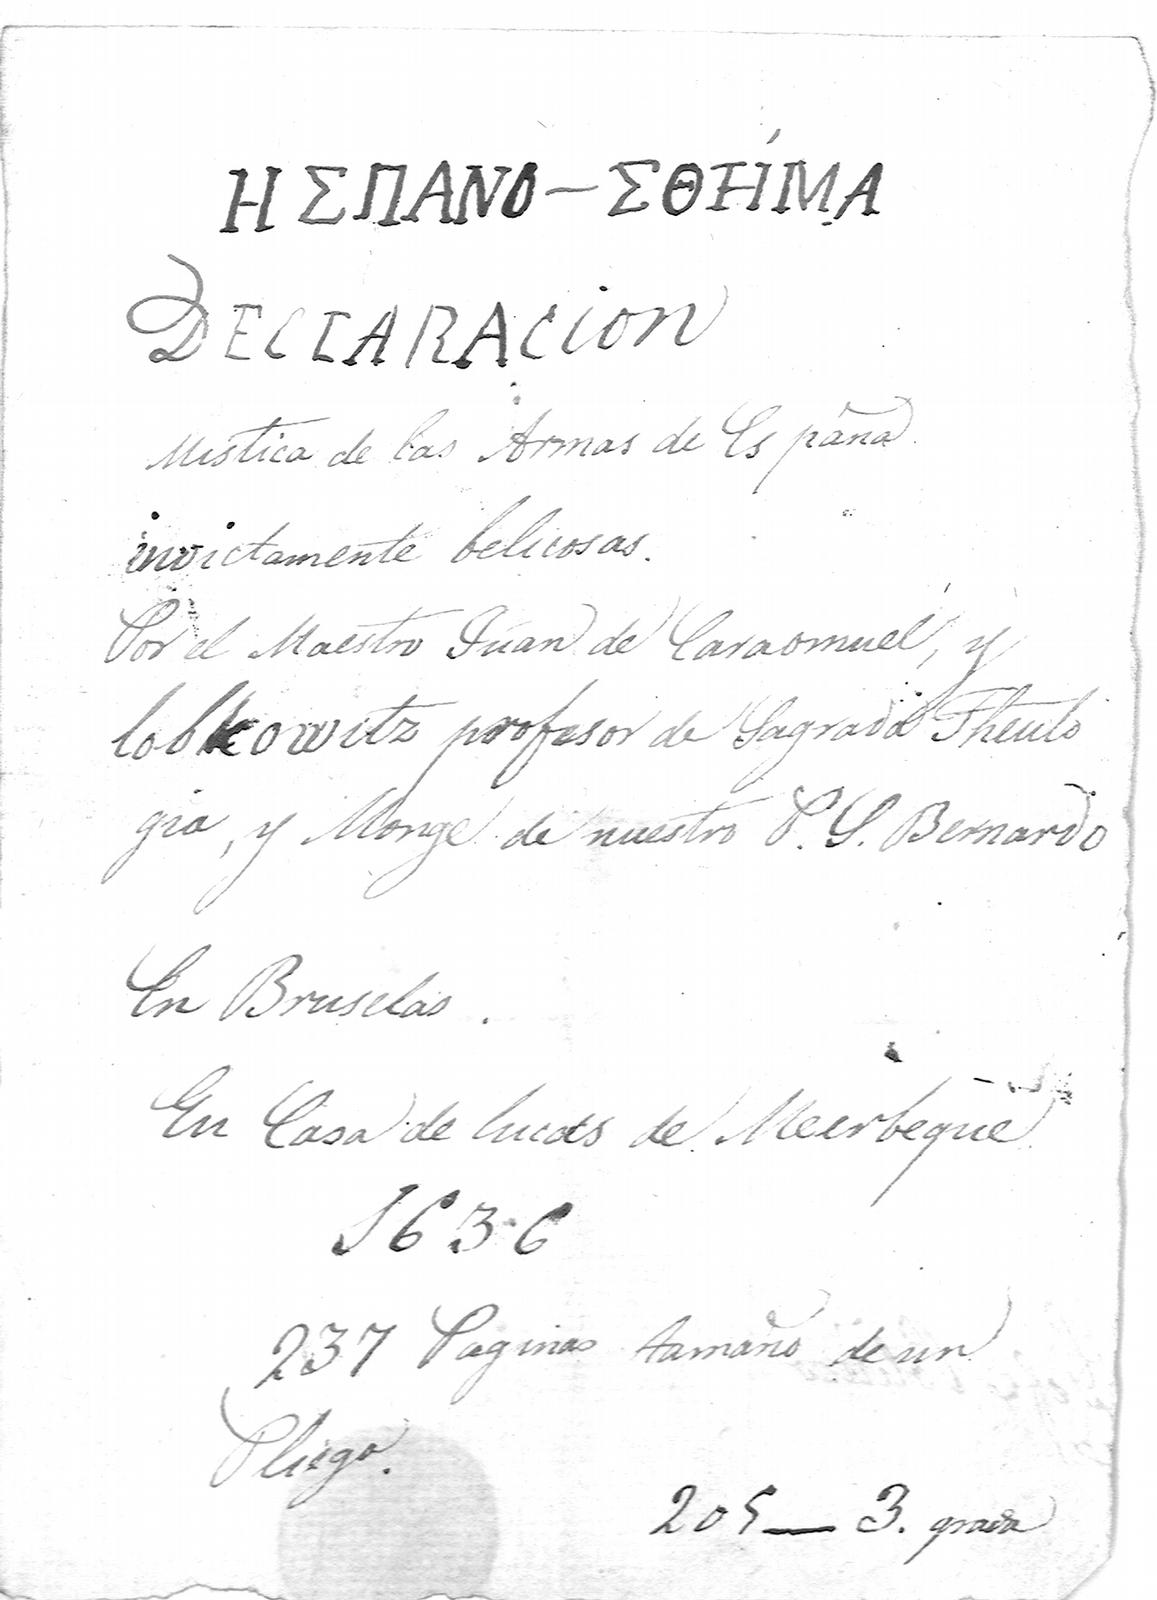 ΗΣΠΑΝΟ–ΣΘΉΜΑ
DECLARACion
Mistica de las Armas de España
invictamente belicosas.
Por el Maestro Juan de Caraomuel, y
lobkowitz profesor de Sagrada Theulo
gia, y Monge de nuestro P. S. Bernardo
En Bruselas.
En Casa de lucas de Meerbeque
1636
237 Paginas tamaño de un
Pliego.
205 — 3. grada